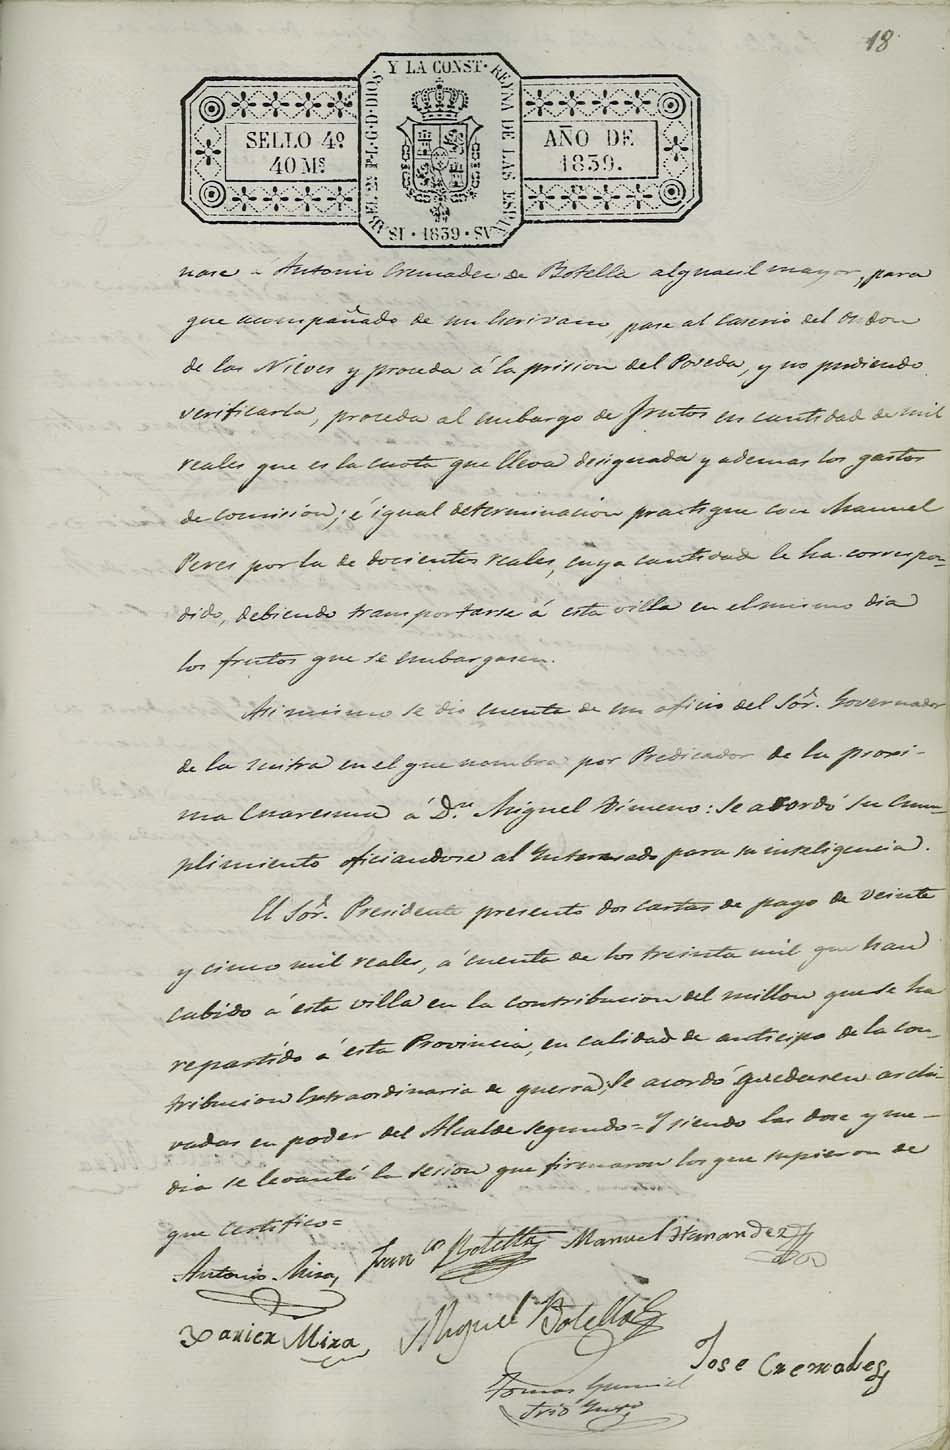 18
SELLO 4º
40 Ms
ISABEL 2ª P.L.G.D.DIOS Y LA CONST. REYNA DE LAS ESPAÑAS
· 1839 ·
AÑO DE
1839.
nase á Antonio Cremades de Botella alguacil mayor, para
que acompañado de un Escrivano, pase al caserio del don
de las Nieves y proceda á la prision del Poveda, y no pudiendo
verificarla, proceda al embargo de frutos en cantidad de mil
reales que es la cuota que lleva designada y ademas los gastos
de comision; é igual determinacion practique con Manuel
Peres por la de docientos reales, cuya cantidad le ha correspon-
dido, debiendo transportarse á esta villa en el mismo dia
los frutos que se embargasen.
Asi mismo se dio cuenta de un oficio del Sor. Governador
de la Mitra en el que nombra por Predicador de la proxi-
ma Cuaresma á Dn. Miguel Ximeno: Se acordó su cum-
plimiento oficiandose al Interesado para su inteligencia.
El Sor. Presidente presento dos cartas de pago de veinte
y cinco mil reales, á cuenta de los treinta mil que han
cabido á esta villa en la contribucion del millon que se ha
repartido á esta Provincia, en calidad de anticipo de la con-
tribucion Extraordinaria de guerra; Se acordó quedasen archi-
vadas en poder del Alcalde segundo = Y siendo las doce y me-
dia se levantó la sesion que firmaron los que supieron de
que certifico =
Antonio Mira Franco Botella Manuel Hernandez
Xavier Mira Miguel Botella
Jose Cremades
Tomas
Srio